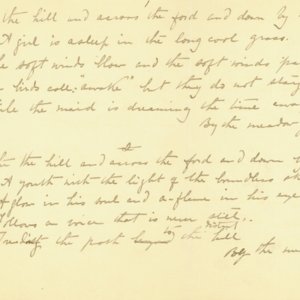 the hill and across the ford and down by
A girl is asleep in the long cool grass.
soft winds blow and the soft winds
birds call: "awake" but they do not
the maid is dreaming the time
By the meadow
the hill and across the ford and down
A youth with the light of the boundless
glow in his soul and a flame in his eye
follows a voice that is never still.
distant
the path to the hill
By the